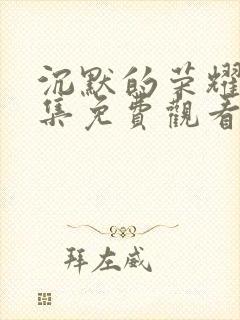 沉默的荣耀
集免費觀看
拜左威